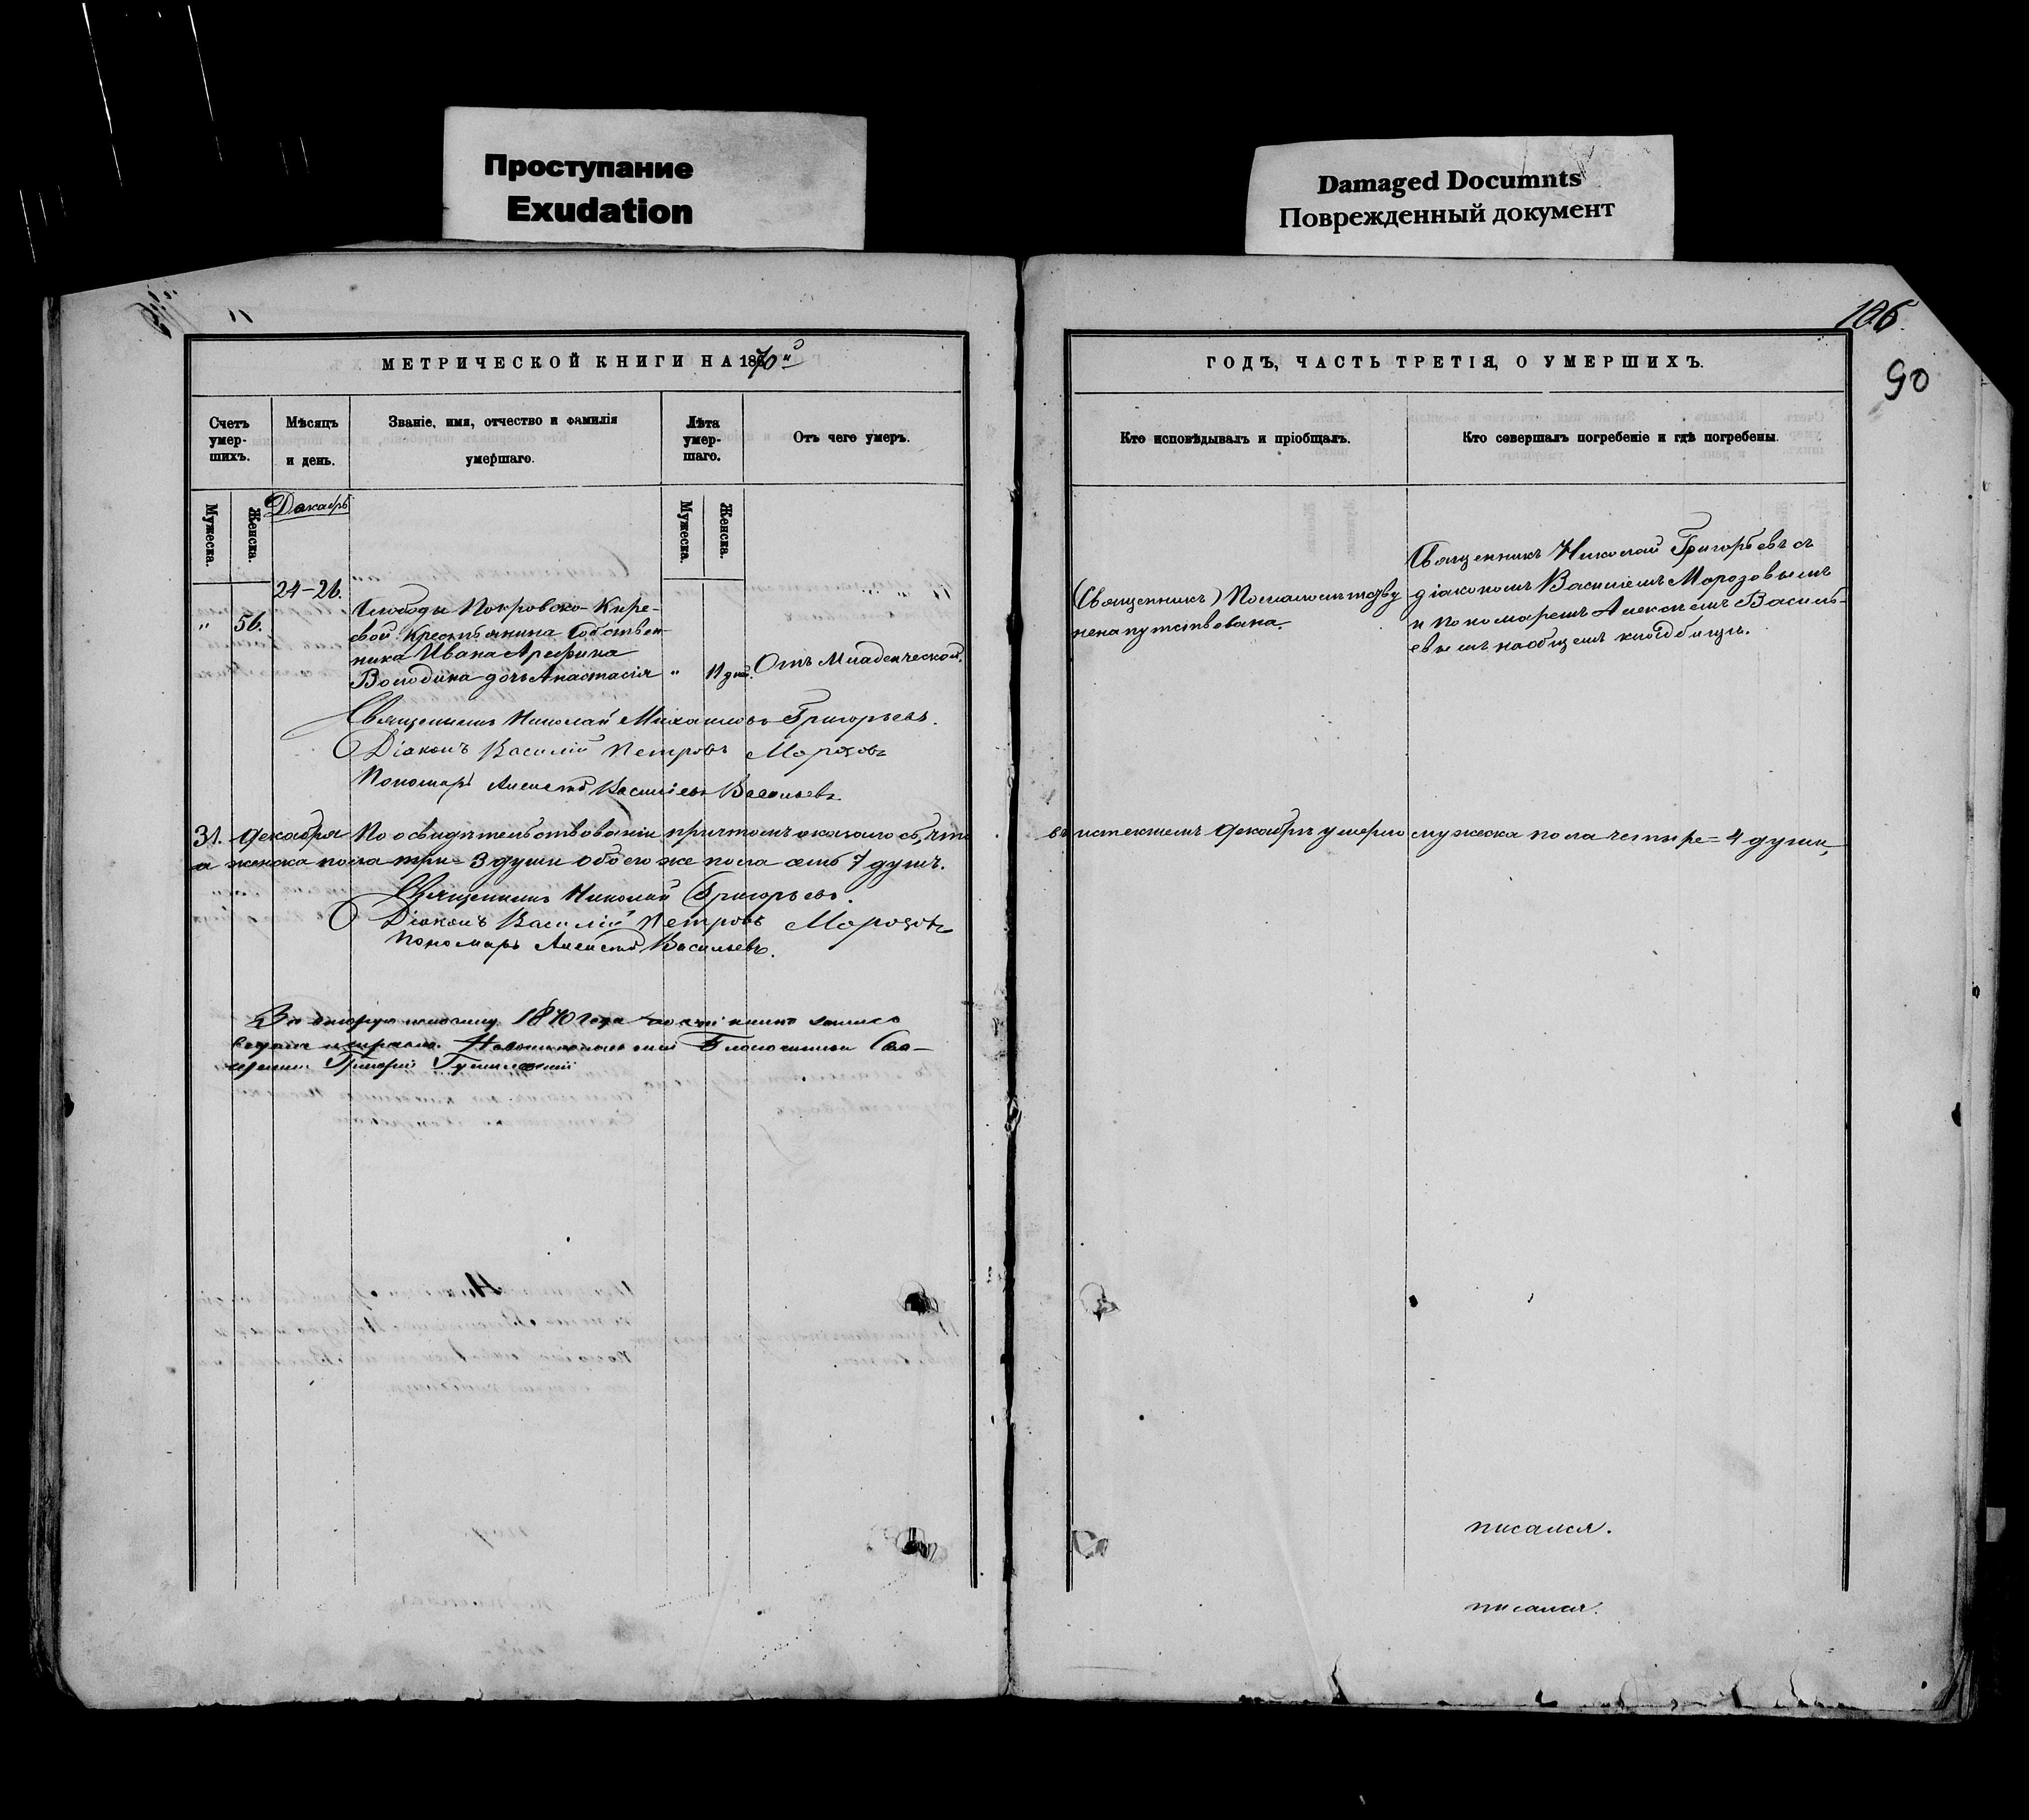 Проступание
Exudation
Damaged Documnts
Поврежденный документ
106.
90
МЕТРИЧЕСКОЙ КНИГИ НА 1870й
ГОДЪ, ЧАСТЬ ТРЕТІЯ, О УМЕРШИХЪ.
Счетъ умер-шихъ.
Мѣсяцъ и день.
Званіе, имя, отчество и фамилія умершаго.
Лѣта умер-шаго.
Отъ чего умеръ.
Кто исповѣдывалъ и пріобщалъ.
Кто совершалъ погребеніе и гдѣ погребены.
Мужеска.
Женска.
Декабрь
Мужеска.
Женска.
24-26.
" 56.
Слободы Покровско-Кире-
евой Крестьянина Собствен-
ника Ивана Арефина
Володина дочь Анастасія
"
дней.
Отъ Младенческой.
Священникъ По малолѣтству
ненапутствована.
Священникъ Николай Григорьевъ съ
діакономъ Василіемъ Морозовымъ
и пономаремъ Алексѣемъ Василь-
евымъ на общемъ кладбищѣ.
Священникъ Николай Михаиловъ Григорьевъ.
Діаконъ Василій Петровъ Морозовъ
Пономарь Алексѣй Василіевъ Васильевъ
31. Декабря По освидѣтельствованіи причтомъ оказалось, что въ истекшемъ Декабрѣ умерло мужеска пола четыре = 4 души,
а женска пола три = 3 души обоего же пола семь 7 душъ.
Священникъ Николай Григорьевъ.
Діаконъ Василій Петровъ Морозовъ
Пономарь Алексѣй Васильевъ.
За вторую половину 1870 года по сей книге запись
ведена исправно. Благочинный Свя-
щенникъ Григорій
писался.
писался.